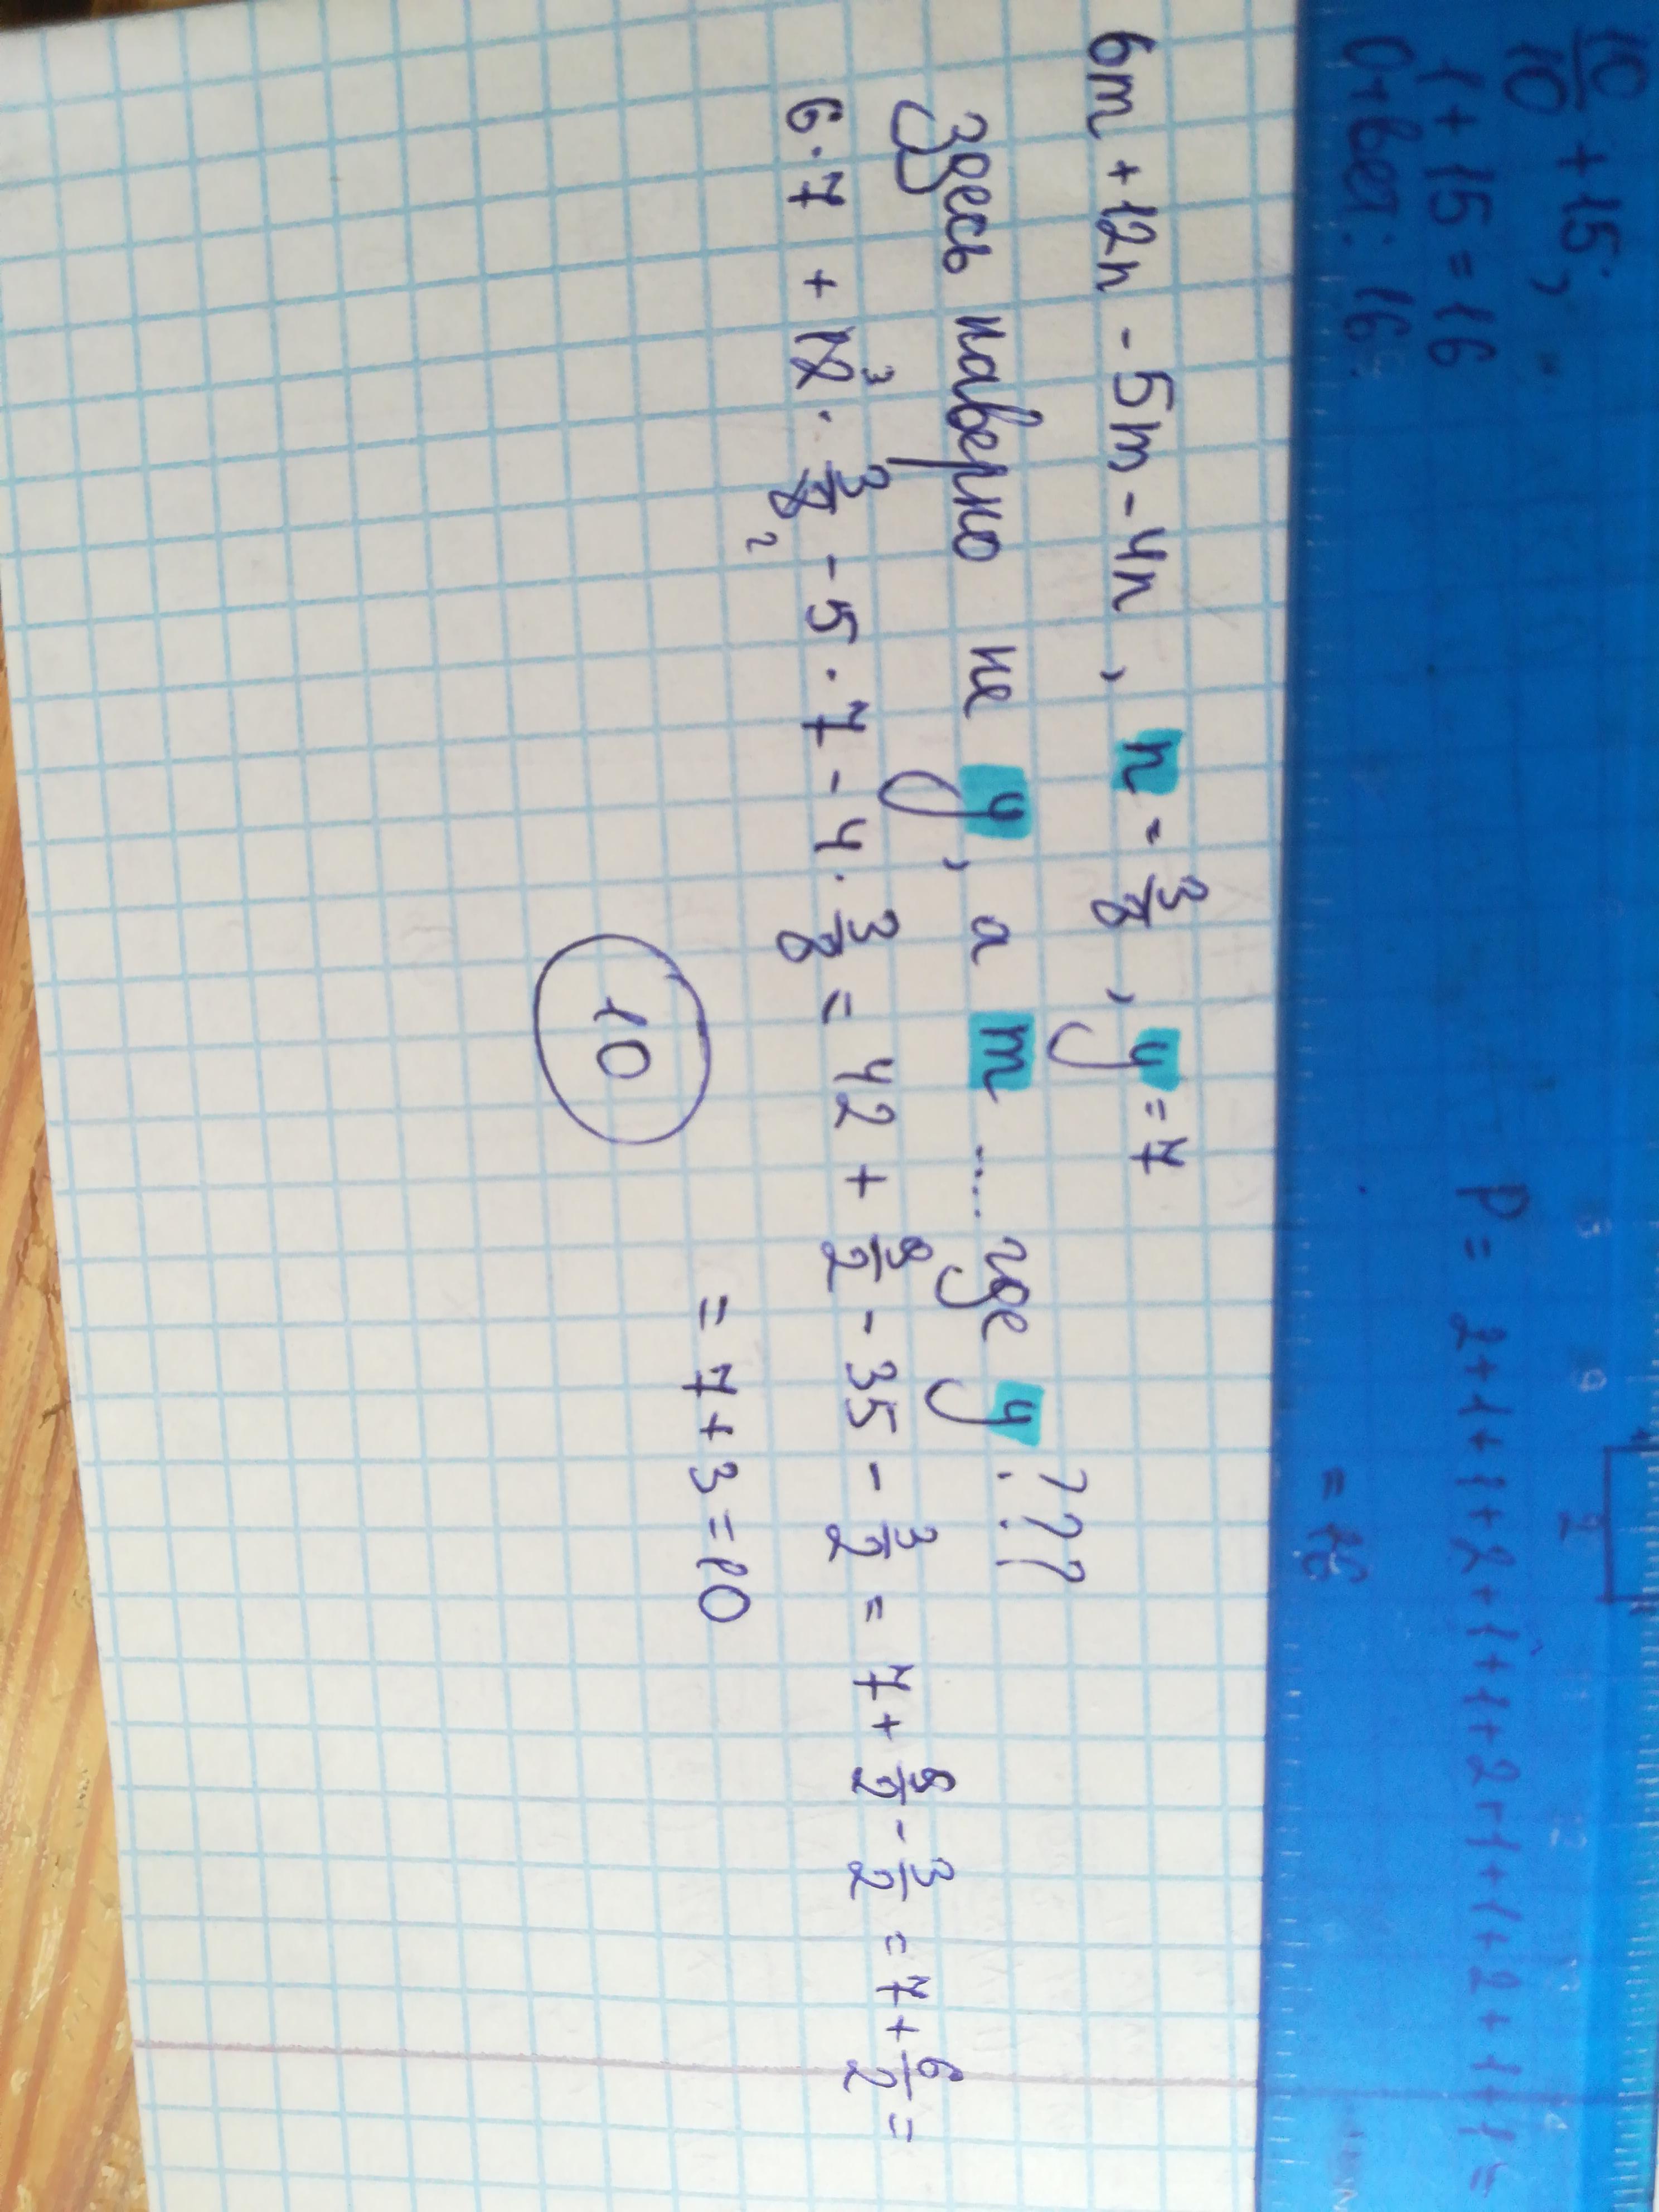 10/10 + 15,
1 + 15 = 16
Ответ: 16.
2
P = 2+1+1+2+1+1+2+1+1+2+1+1=
= 16
6m + 12n - 5m - 4n, n = 3/8, y = 7
Здесь наверно не y, а m .... где y???
6·7 + 12 3 · 3/8 2 - 5·7 - 4·3/8 = 42 + 9/2 - 35 - 3/2 = 7 + 9/2 - 3/2 = 7 + 6/2 =
= 7 + 3 = 10
10